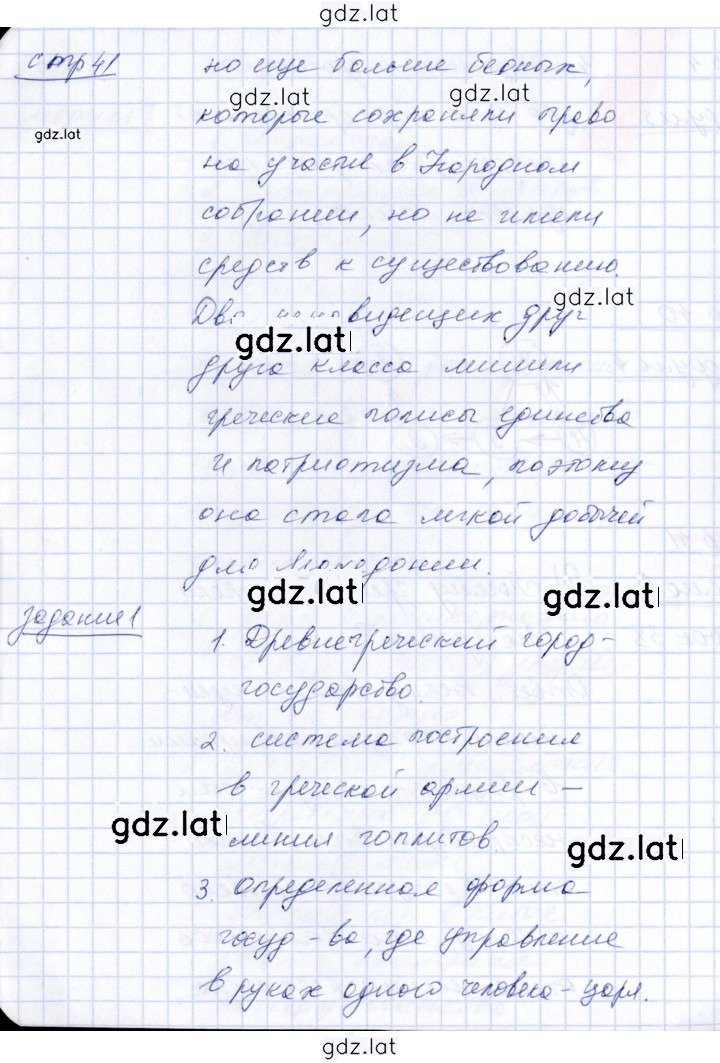 gdz.lat
стр 41
но еще больше бедных,
gdz.lat
gdz.lat
которые сохраняли право
gdz.lat
на участие в Народном
собрании, но не имели
средств к существованию.
gdz.lat
видещих друг
gdz.lat
друга класса лишили
греческие полисы единства
и патриотизма, поэтому
она стала легкой добычей
для Македонии.
gdz.lat
gdz.lat
задание 1
1. Древнегреческий город-
государство.
2. система построения
в греческой армии -
gdz.lat
линия гоплитов.
gdz.lat
3. определенная форма
госуд-ва, где управление
в руках одного человека - царя.
gdz.lat